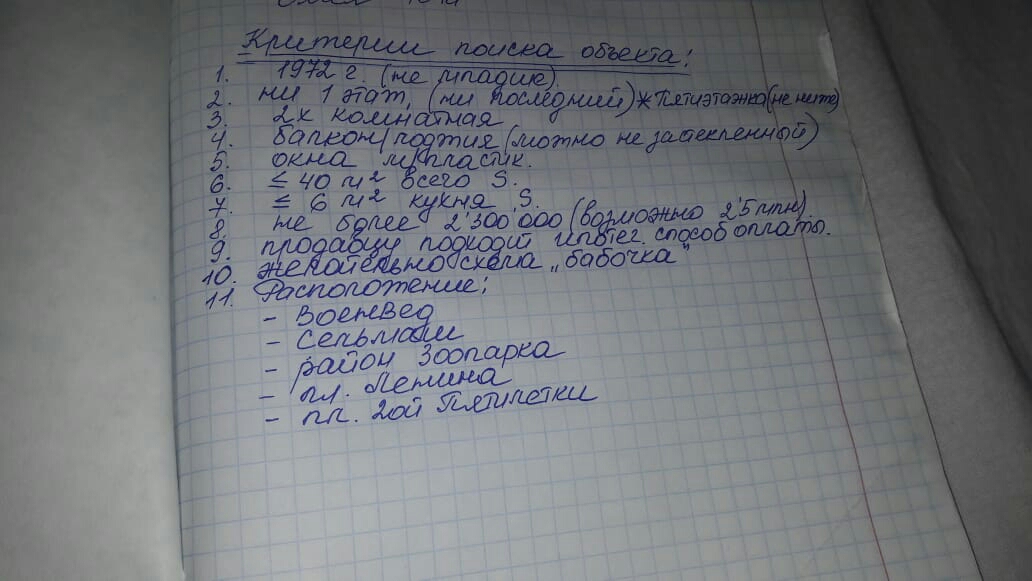 Критерии поиска объекта:
1. 1972 г. (не младше)
2. ни 1 этаж, (ни последний) * Пятиэтажка (не ниже)
3. 2х комнатная
4. балкон/лоджия (можно не застекленный)
5. окна м/пластик.
6. ≤ 40 м² всего S.
7. ≤ 6 м² кухня S.
8. не более 2'300'000 (возможно 2'5 млн).
9. продавцу подходит ипотег. способ оплаты.
10. желательно схема „бабочка"
11. Расположение:
- Военвед
- Сельмаш
- район Зоопарка
- пл. Ленина
- пл. 2ой Пятилетки